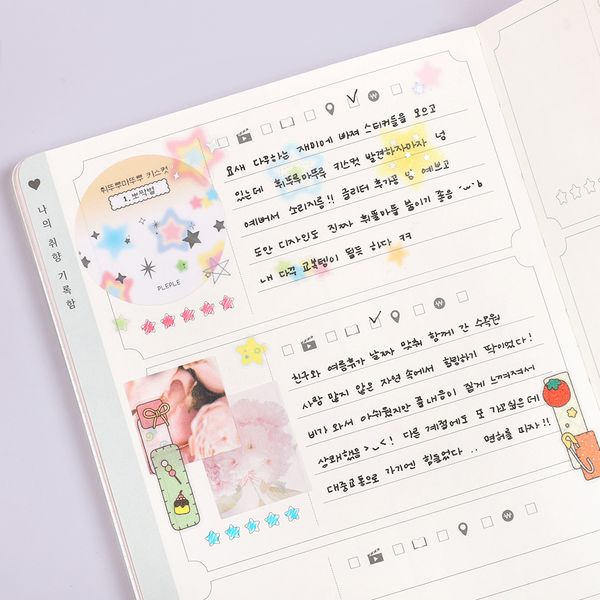 나의 취향 기록함
휘뚜루마뚜루 키스컷
1. 뽀짝별
PLEPLE
요새 다꾸하는 재미에 빠져 스티커들을 모으고
있는데 휘뚜루마뚜루 키스컷 발견하자마자 넘
예뻐서 소리지름!! 글리터 추가공 말 예쁘고
도안 디자인도 진짜 휘뚤마뚤 붙이기 좋음
내 다꾸 교복템이 될듯 하다 ㅋㅋ
친구와 여름휴가 날짜 맞춰 함께 간 수목원
사람 많지 않은 자연 속에서 힐링하기 딱이었다!
비가 와서 아쉬웠지만 풀내음이 짙게 느껴져서
상쾌했음 다른 계절에도 또 가고 싶은데
대중교통으로 가기엔 힘들었다.. 면허를 따자!!